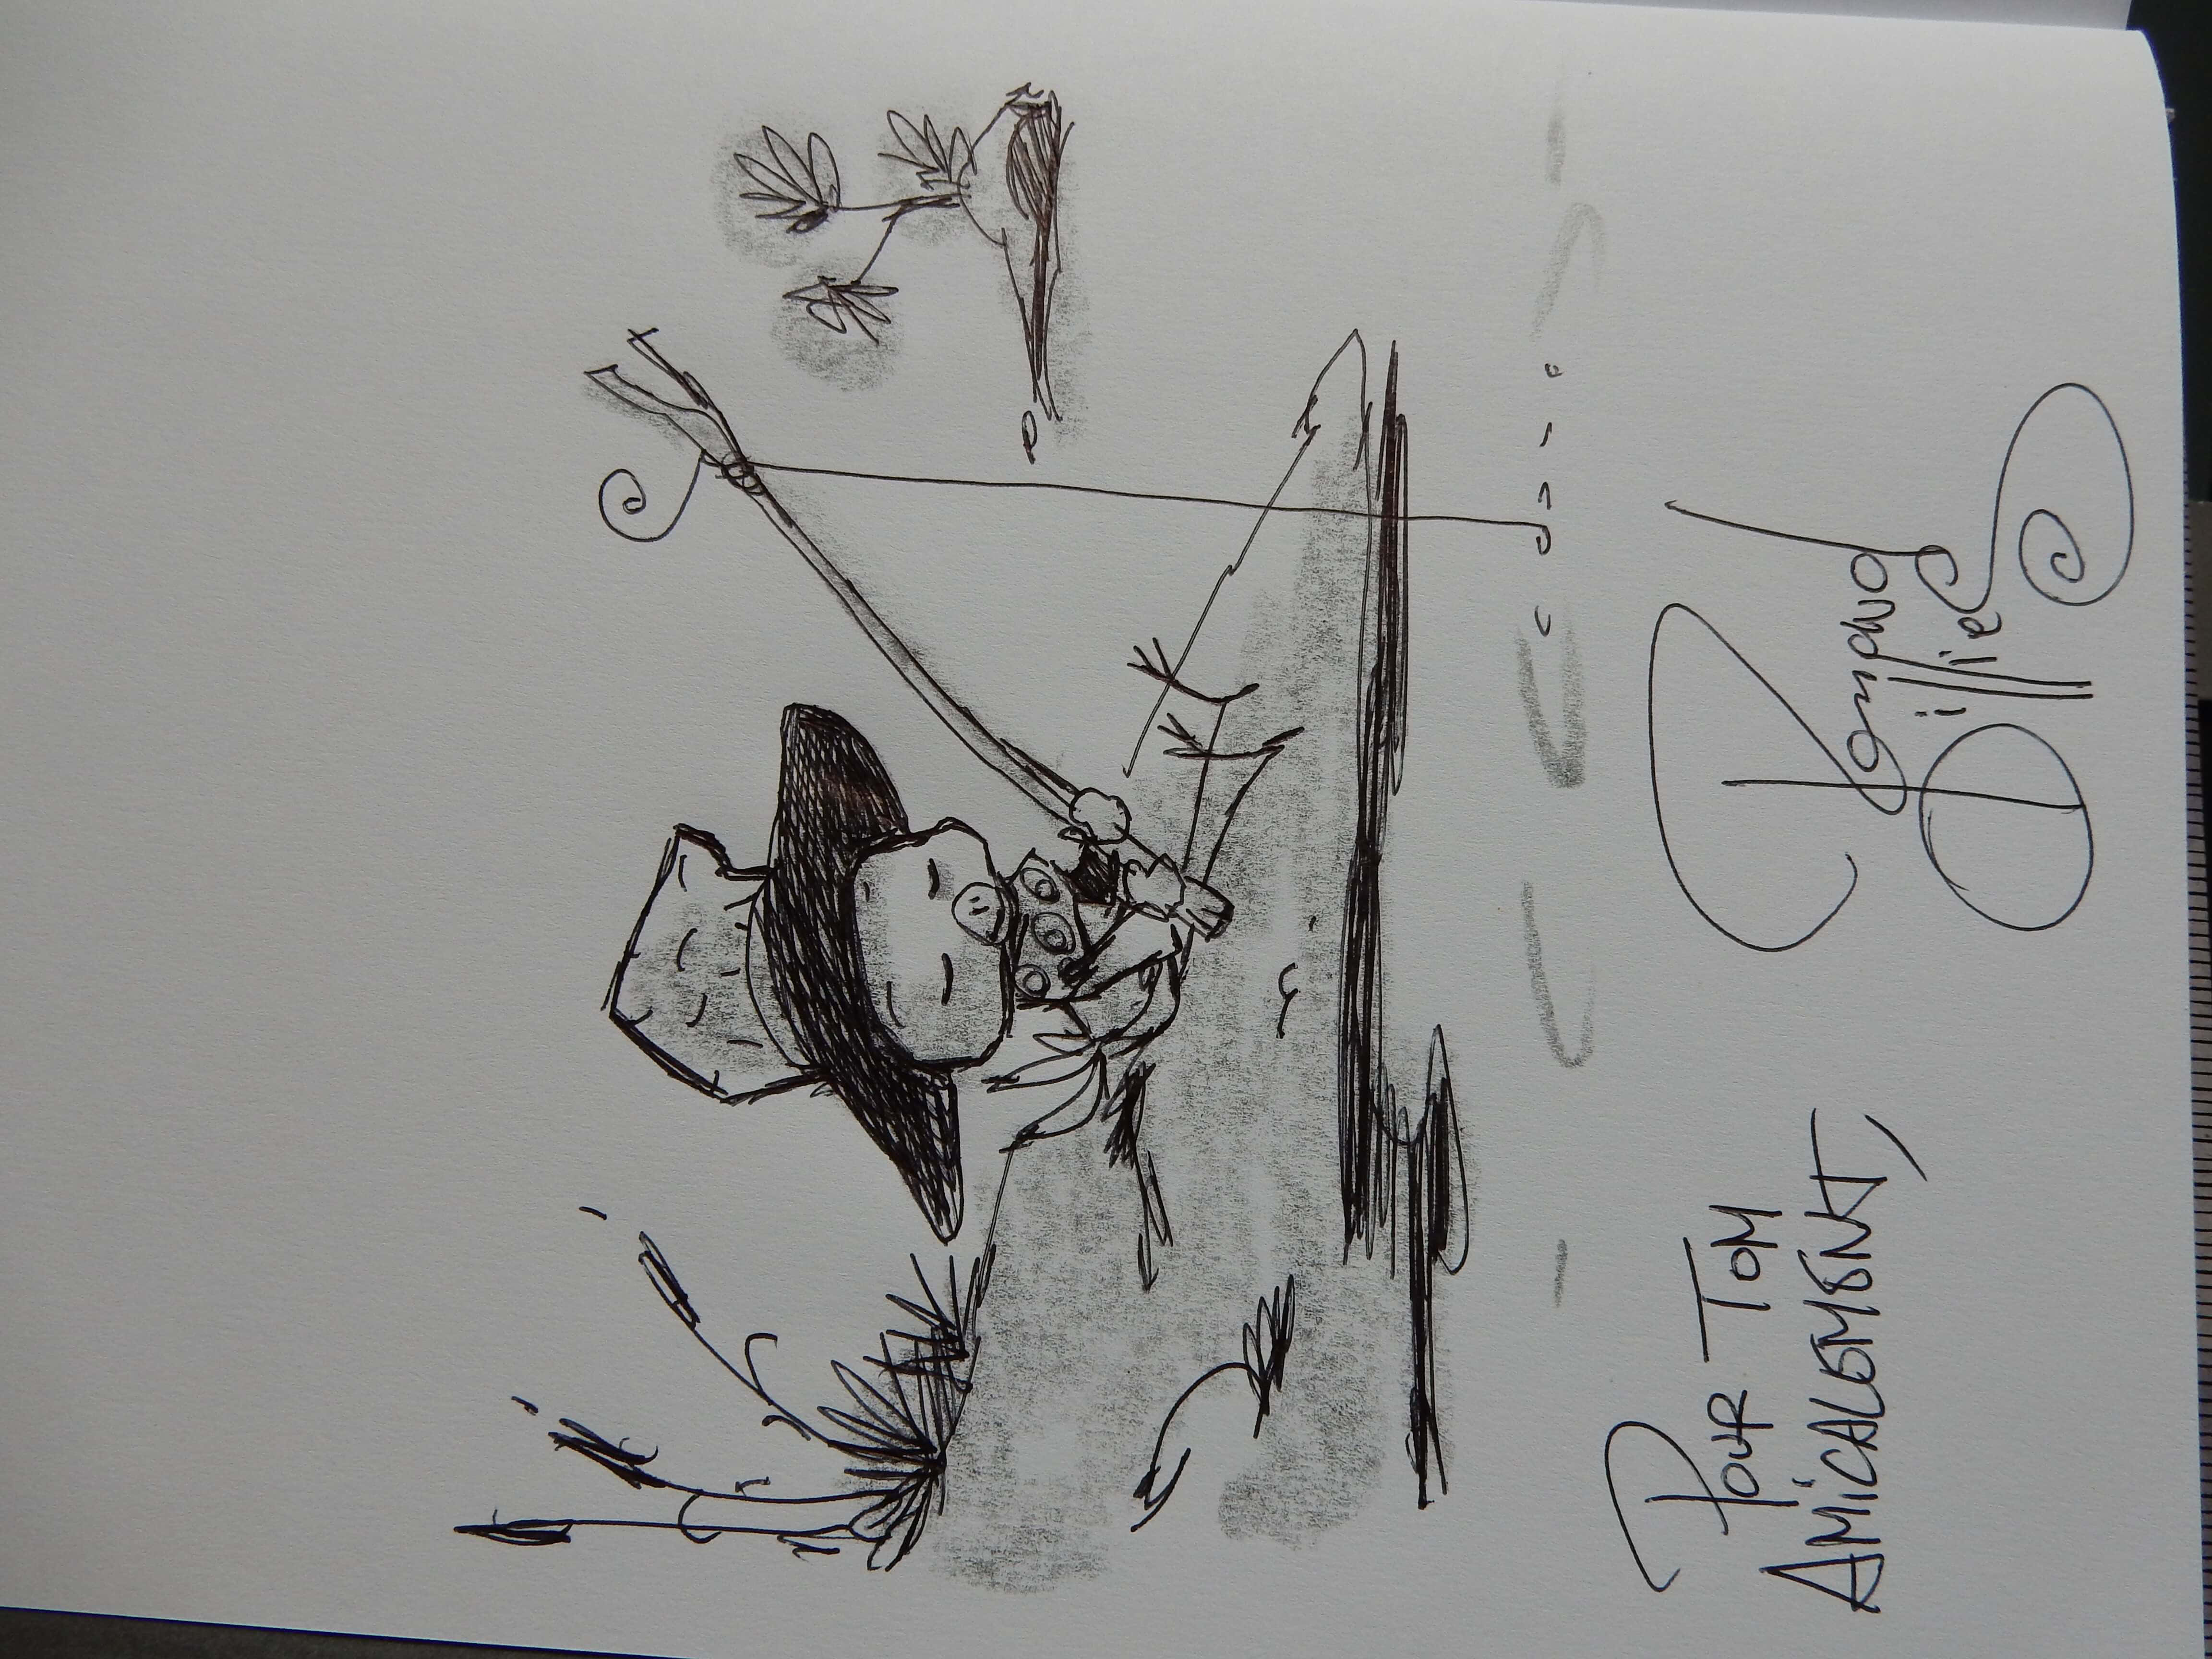 POUR TOM
AMiCALEMENT,
Renaud
Dillies